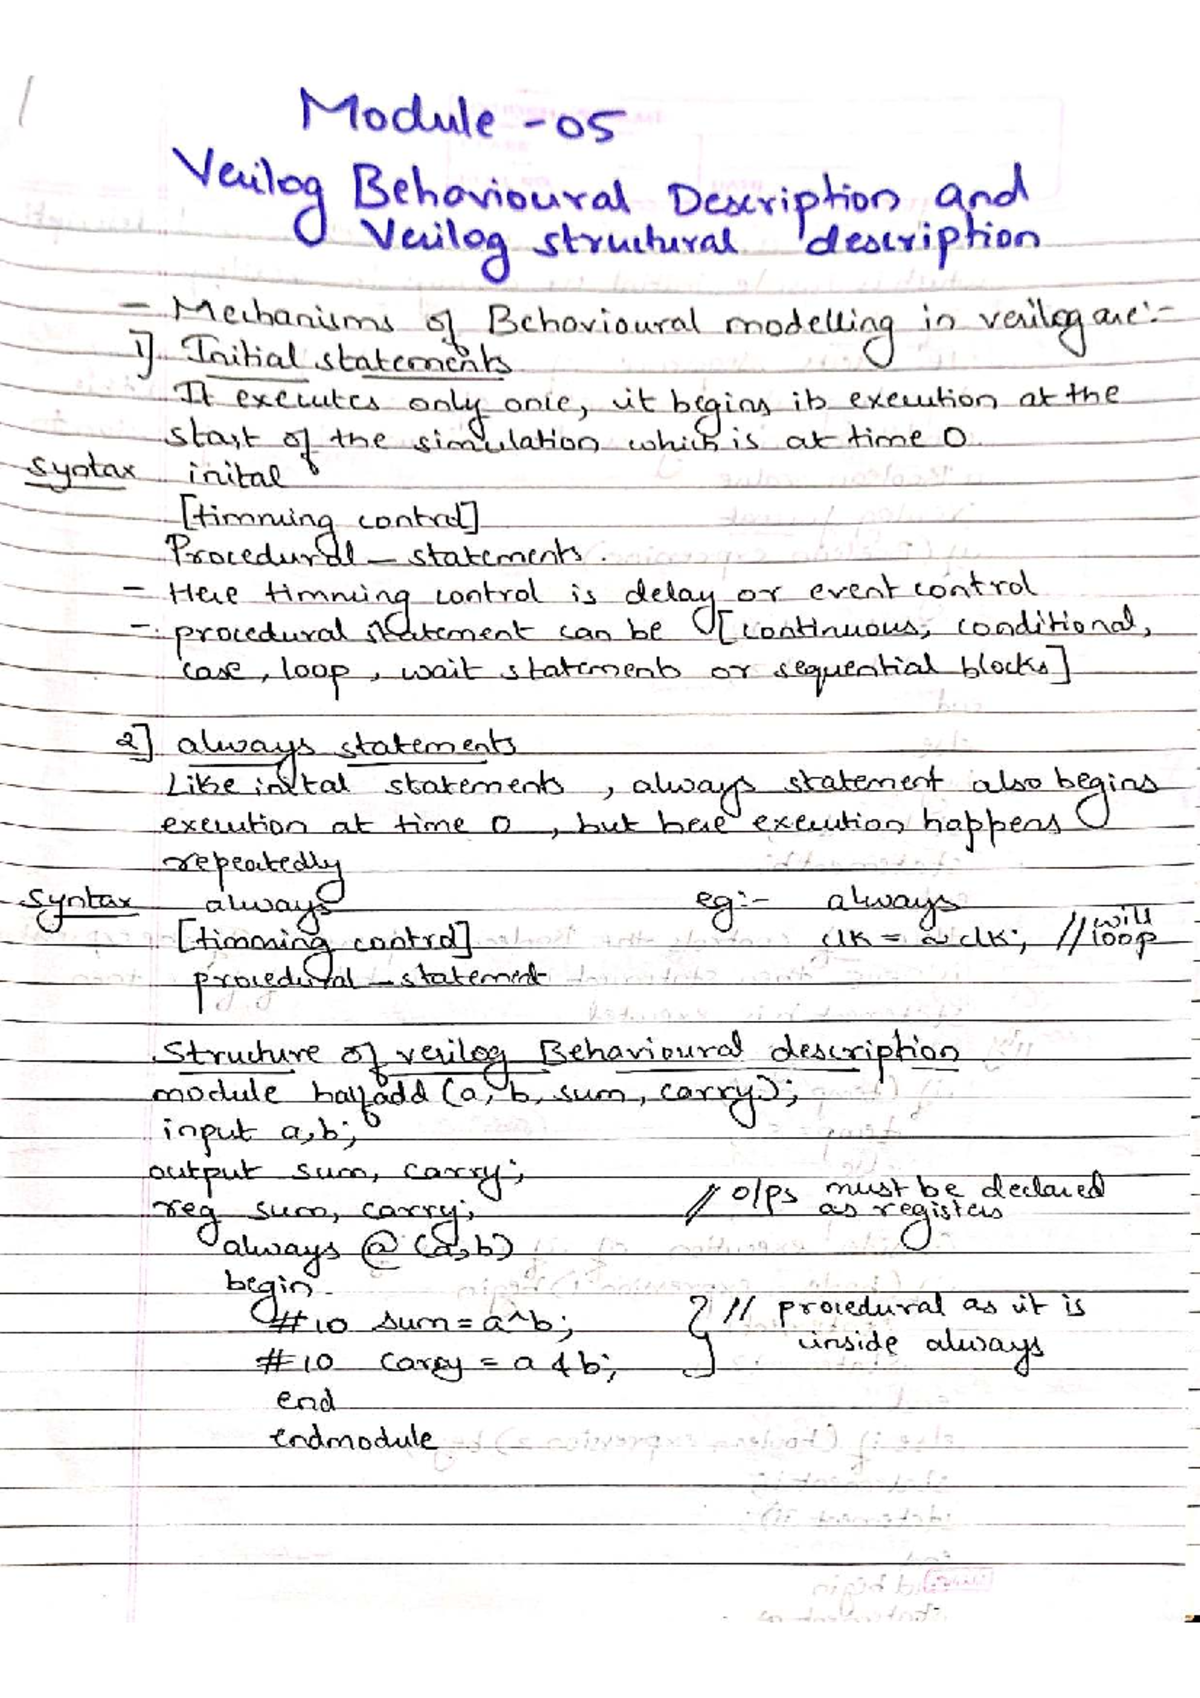 Module - 05
Verilog Behavioural Description and
Verilog structural description
- Mechanisms of Behavioural modelling in verilog are:-
1] Initial statements
It executes only once, it begins its execution at the
start of the simulation which is at time 0.
syntax inital
[timming control]
Procedural - statements.
- Here timming control is delay or event control
- procedural statement can be [continuous, conditional,
case, loop, wait statements or sequential blocks]
2] always statements
Like inital statements, always statement also begins
execution at time 0, but here execution happens
repeatedly
syntax always eg:- always
[timming control] clk = ~clk; // will loop
procedural - statement
Structure of verilog Behavioural description
module halfadd (a, b, sum, carry);
input a,b;
output sum, carry;
reg sum, carry; // o/ps must be declared as registers
always @ (a,b)
begin
#10 sum = a^b; } // procedural as it is
#10 carry = a & b; inside always
end
endmodule